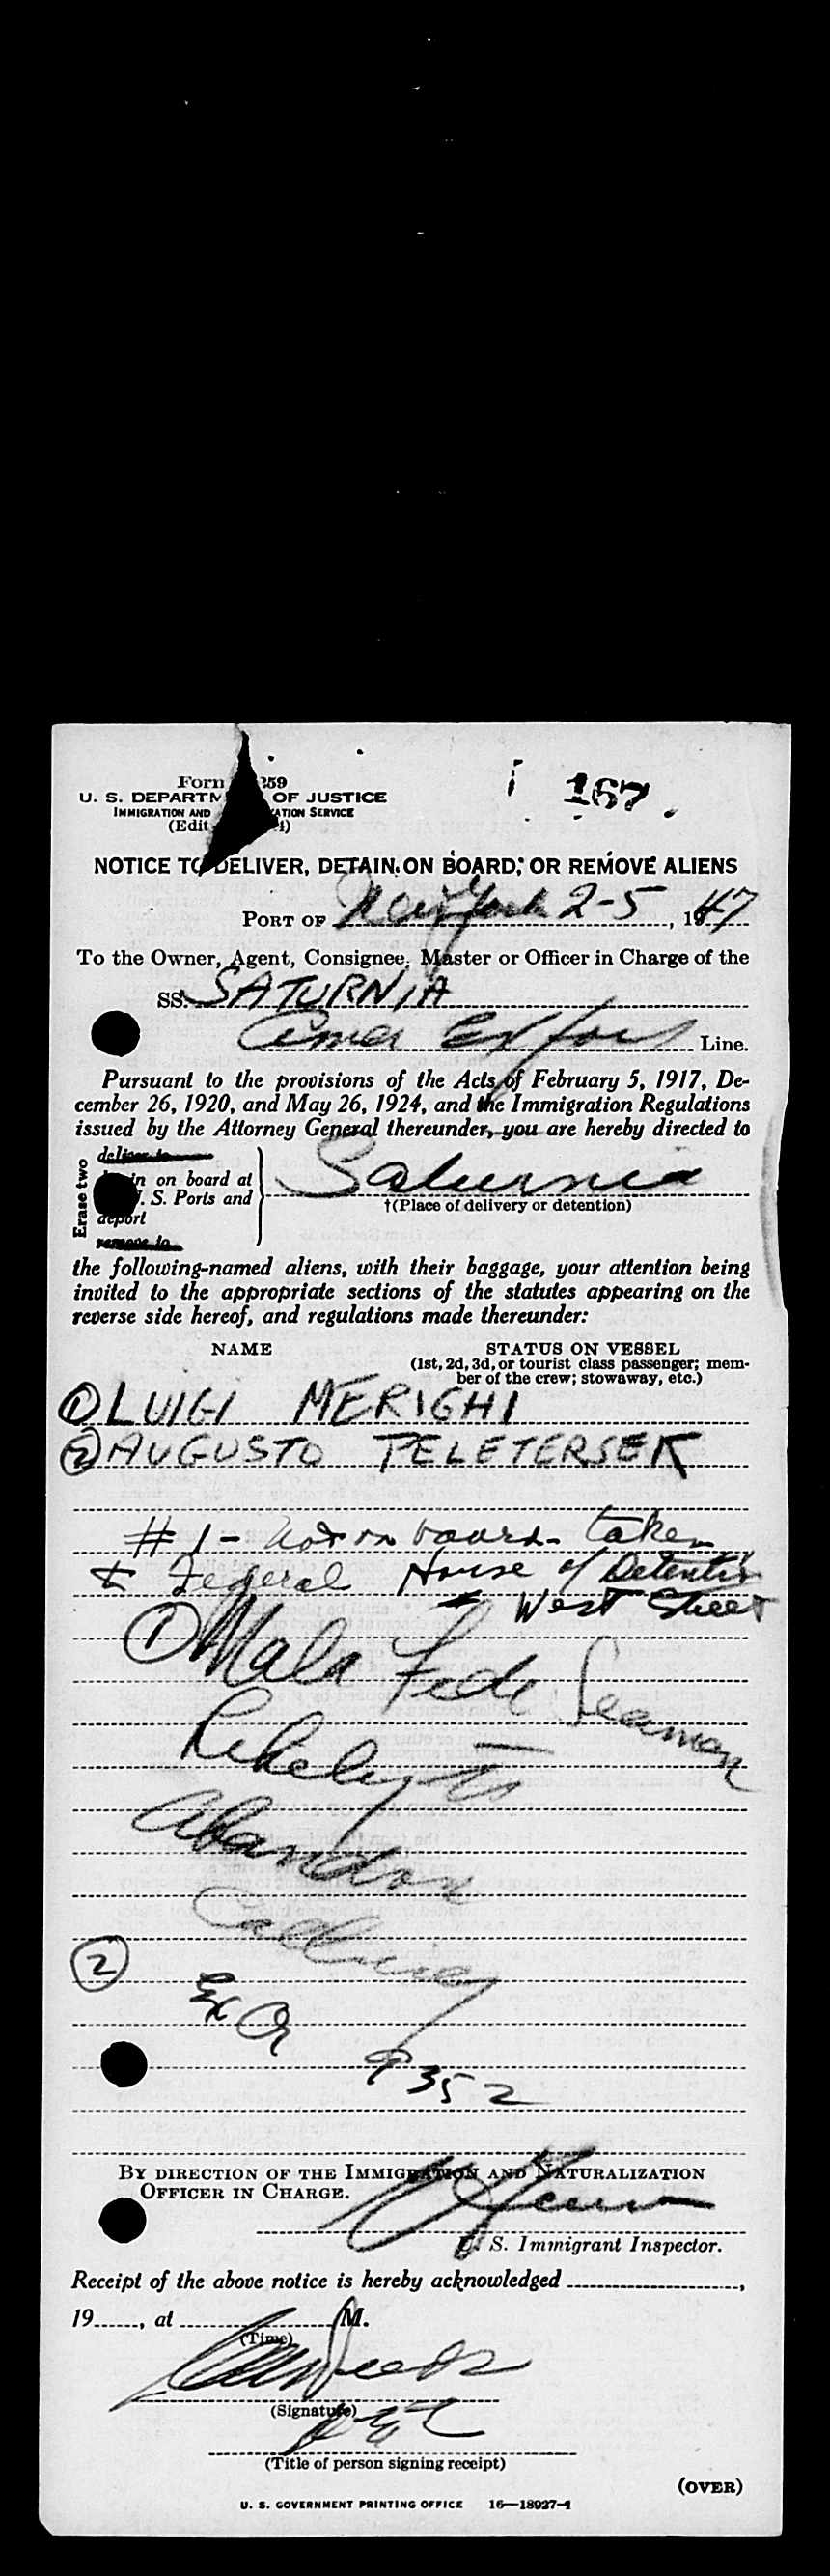 Form 259
167
U. S. DEPARTM OF JUSTICE
IMMIGRATION AND ATION SERVICE
(Edit
NOTICE TO DELIVER, DETAIN ON BOARD, OR REMOVE ALIENS
PORT OF New York 2-5, 1947
To the Owner, Agent, Consignee, Master or Officer in Charge of the
SS. SATURNIA
Amer Export Line.
Pursuant to the provisions of the Acts of February 5, 1917, De-
cember 26, 1920, and May 26, 1924, and the Immigration Regulations
issued by the Attorney General thereunder, you are hereby directed to
Erase two
deliver to
in on board at
. S. Ports and
deport
remove to
Saturnia
†(Place of delivery or detention)
the following-named aliens, with their baggage, your attention being
invited to the appropriate sections of the statutes appearing on the
reverse side hereof, and regulations made thereunder:
NAME STATUS ON VESSEL
(1st, 2d, 3d, or tourist class passenger; mem-
ber of the crew; stowaway, etc.)
① LUIGI MERIGHI
② AUGUSTO PELETERSEK
# 1 - not on board - taken
to Federal House of Detention
West Street
① Mala Fide Seaman
Likely to
Abandon
Calling
②
9352
BY DIRECTION OF THE IMMIGRATION AND NATURALIZATION
OFFICER IN CHARGE.
U. S. Immigrant Inspector.
Receipt of the above notice is hereby acknowledged ,
19 , at M.
(Time)
(Signature)
(Title of person signing receipt)
(OVER)
U. S. GOVERNMENT PRINTING OFFICE 16—18927-1